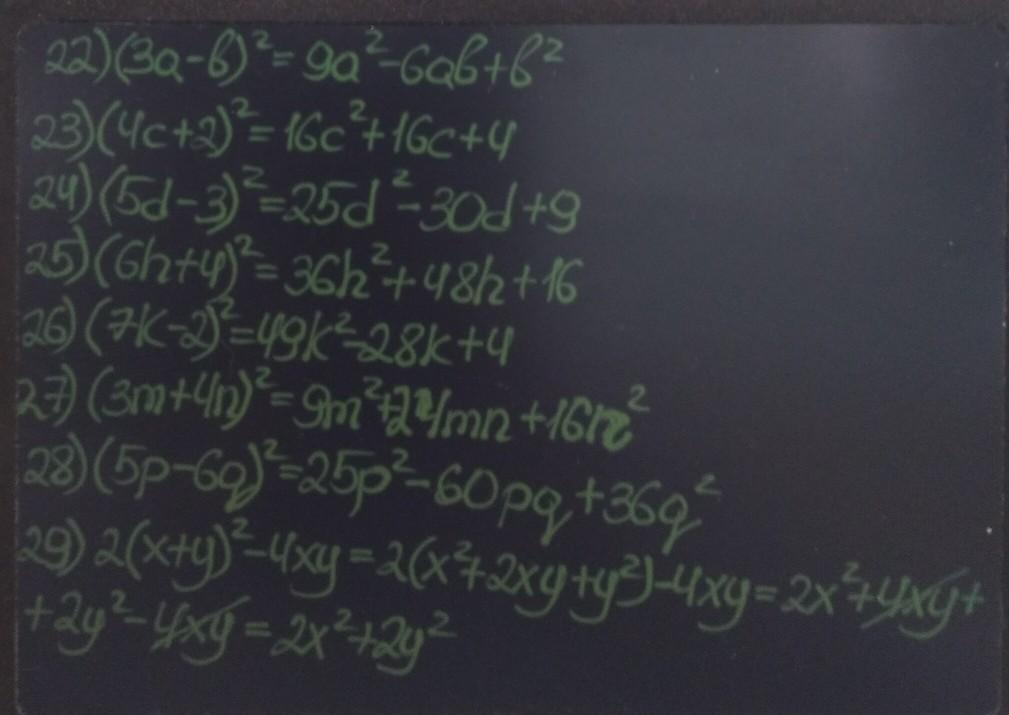 22)(3a-b)²=9a²-6ab+b²
23)(4c+2)²=16c²+16c+4
24)(5d-3)²=25d²-30d+9
25)(6h+4)²=36h²+48h+16
26)(7k-2)²=49k²-28k+4
27)(3m+4n)²=9m²+24mn+16n²
28)(5p-6q)²=25p²-60pq+36q²
29) 2(x+y)²-4xy=2(x²+2xy+y²)-4xy=2x²+4xy+
+2y²-4xy=2x²+2y²